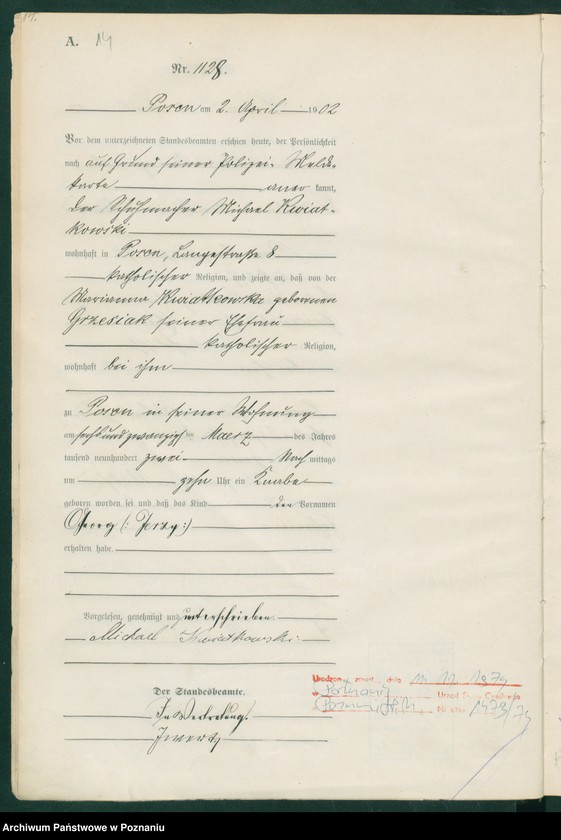 A. 14
Nr. 1128.
Posen am 2. April 1902
Vor dem unterzeichneten Standesbeamten erschien heute, der Persönlichkeit
nach auf Grund seiner Polizei- Melde-
karte aner kannt,
der Schuhmacher Michael Kwiat-
kowski
wohnhaft in Posen, Langestraße 8
katholischer Religion, und zeigte an, daß von der
Marianna Kwiatkowska geborenen
Grzesiak seiner Ehefrau
katholischer Religion,
wohnhaft bei ihm
zu Posen in seiner Wohnung
am sechsundzwanzigsten Maerz des Jahres
tausend neunhundert zwei Nach mittags
um zehn Uhr ein Knabe
geboren worden sei und daß das Kind den Vornamen
Georg (: Jerzy :)
erhalten habe.
Vorgelesen, genehmigt und unterschrieben
Michael Kwiatkowski
Der Standesbeamte.
In Vertretung.
zmarł dnia 1979
Urząd Stanu Cywilnego
Nr aktu 1479/79
Archiwum Państwowe w Poznaniu